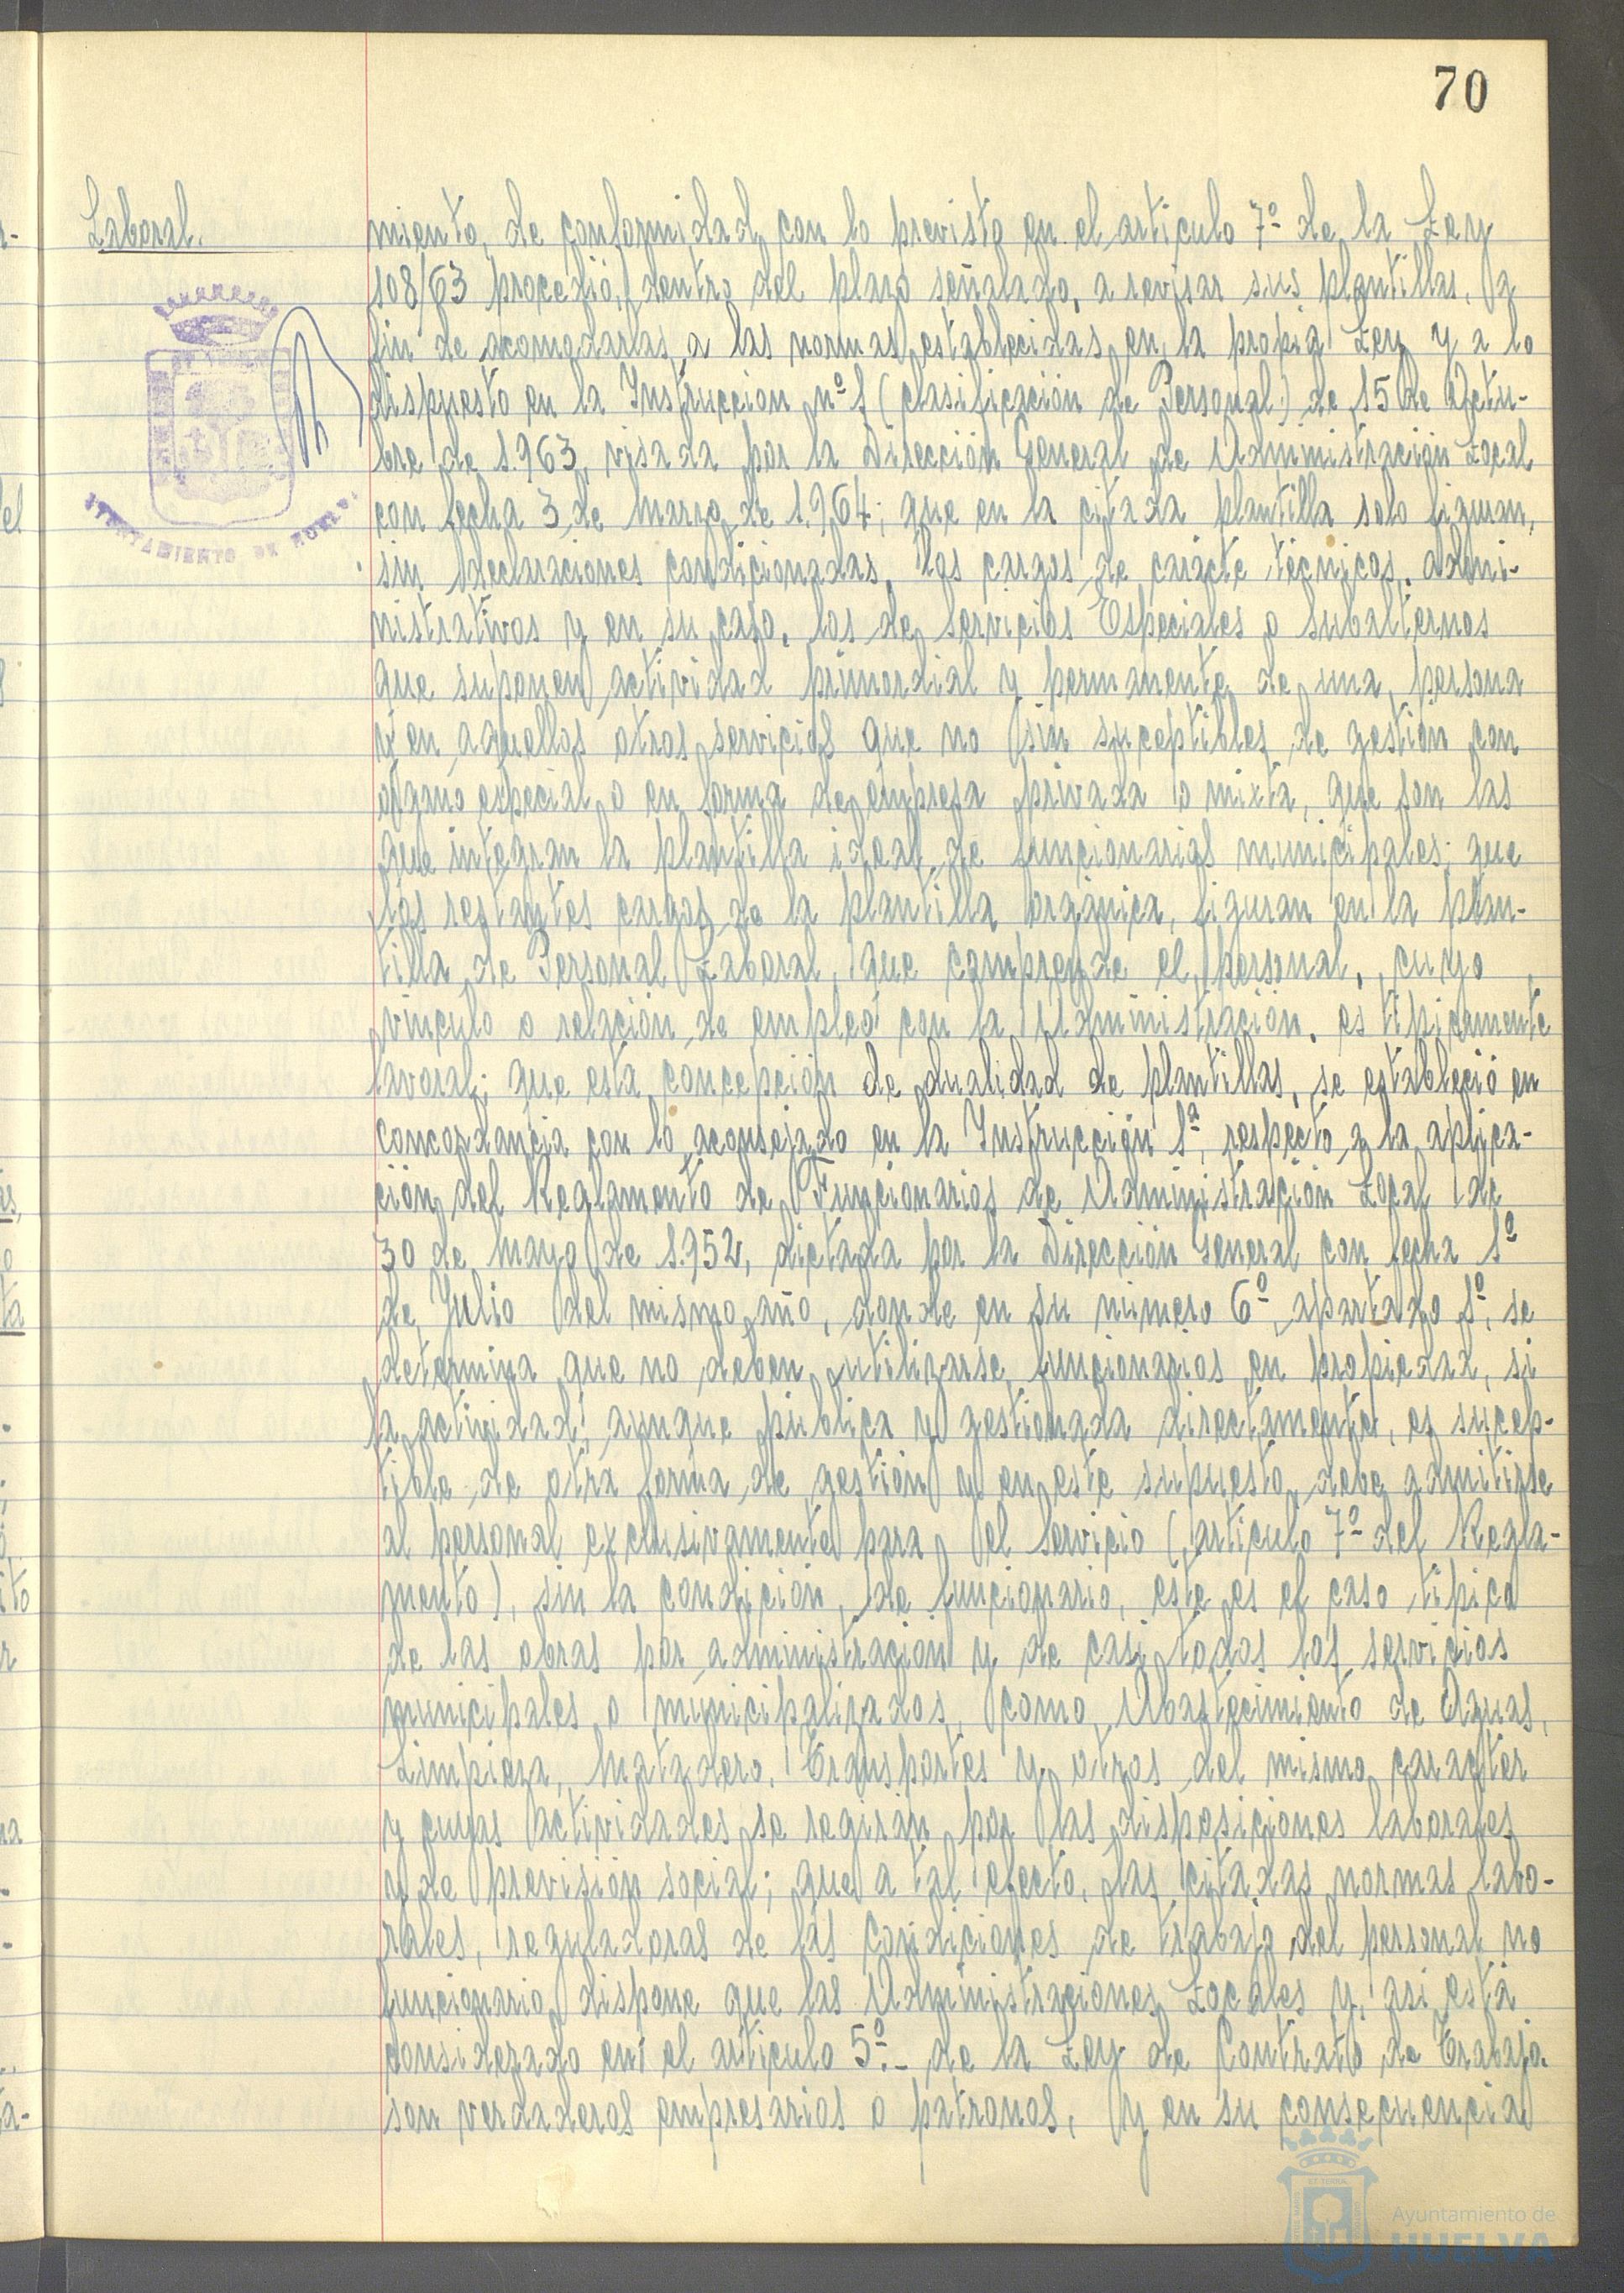 70
Laboral.
miento, de conformidad con lo previsto en el articulo 7º de la Ley
108/63 procedió, dentro del plazo señalado, a revisar sus plantillas, a
fin de acomodarlas a las normas establecidas en la propia Ley y a lo
dispuesto en la Instruccion nº 1 (clasificación de Personal) de 15 de Octu-
bre de 1.963, visada por la Dirección General de Administración Local
con fecha 3 de Marzo de 1.964; que en la citada plantilla solo figuran,
sin declaraciones condicionadas, los cargos de caracte técnicos, admi-
nistrativos y en su caso, los de servicios Especiales o subalternos
que suponen actividad primordial y permanente de una persona
y en aquellos otros servicios que no sin suceptibles de gestión con
organo especial o en forma de empresa privada o mixta, que son las
que integran la plantilla ideal de funcionarios municipales; que
los restantes cargos de la plantilla orgánica, figuran en la plan-
tilla de Personal Laboral, que comprende el personal, cuyo
vinculo o relación de empleo con la Administración, es tipicamente
lavoral; que esta concepción de dualidad de plantillas, se estableció en
concordancia con lo aconsejado en la Instrucción 1ª, respecto a la aplica-
ción del Reglamento de Funcionarios de Administración Local de
30 de Mayo de 1.952, dictada por la Dirección General con fecha 1º
de Julio del mismo año, donde en su número 6º, apartado 1º, se
determina que no deben utilizarse funcionarios en propiedad, si
la actividad, aunque pública y gestionada directamente, es sucep-
tible de otra forma de gestión y en este supuesto debe admitirse
al personal exclusivamente para el servicio (articulo 7º del Regla-
mento), sin la condición de funcionario, este es el caso tipico
de las obras por administración y de casi todos los servicios
municipales o municipalizados, como Abastecimiento de Aguas,
Limpieza, Matadero, Transportes y otros del mismo caracter
y cuyas actividades se regirán por las disposiciones laborales
y de previsión social; que a tal efecto, las citadas normas labo-
rales, reguladoras de las condiciones de trabajo del personal no
funcionario dispone que las Administraciones Locales y, asi está
considerado en el articulo 5º.- de la Ley de Contrato de Trabajo.
son verdaderos empresarios o patronos, y en su consecuencia
AYUNTAMIENTO DE HUELVA
Ayuntamiento de
HUELVA